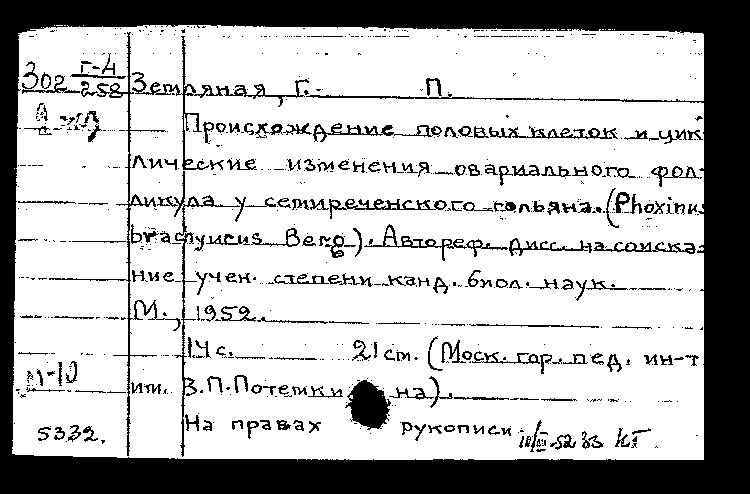 302 г-4/258 Земляная, Г.- П.
Происхождение половых клеток и цик-
лические изменения овариального фол-
ликула у семиреченского гольяна. (Phoxinus
brachyurus Berg). Автореф. дисс. на соиска-
ние учен. степени канд. биол. наук.
М., 1952.
14 с. 21 см. (Моск. гор. пед. ин-т
им. В.П. Потемкина).
5332. На правах рукописи. 52 33 КГ